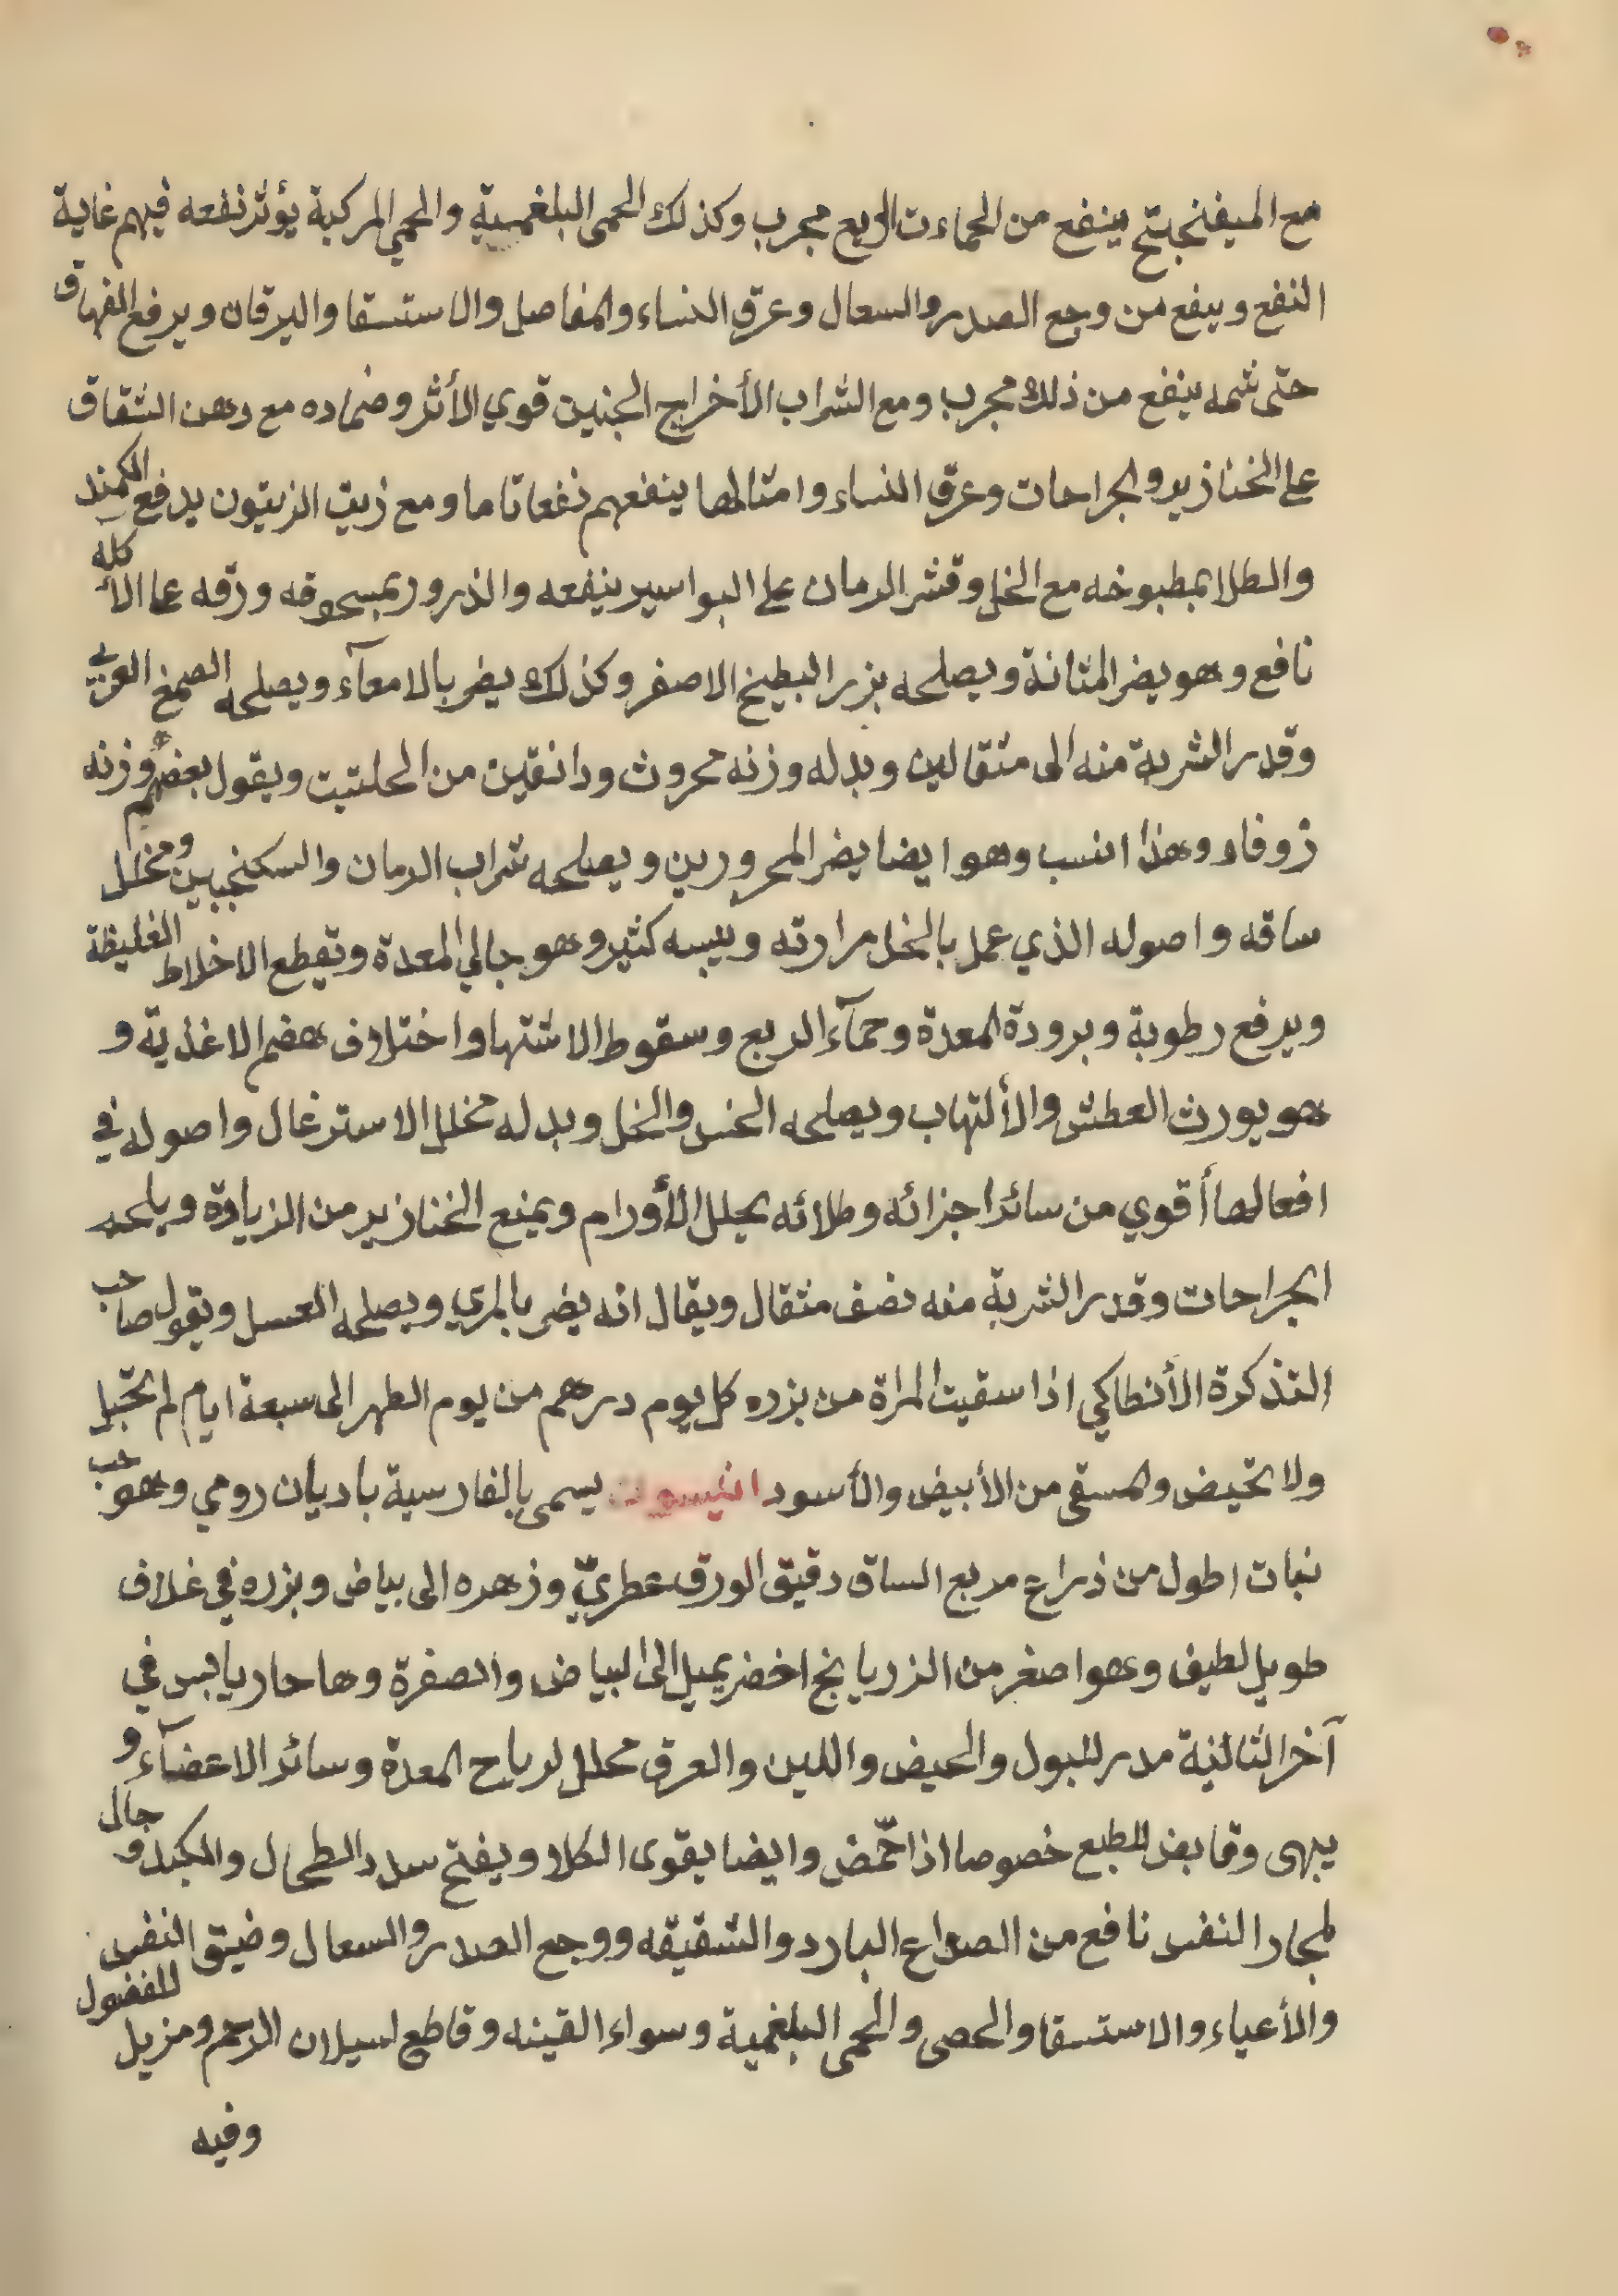 مع الميفنجتج ينفع من الحماءت الربع مجرب وكذلك الحمى البلغمية والحمي المركبة يؤثر نفعه فيهم غاية
النفع وينفع من وجع الصدر والسعال وعرق النساء والمفاصل والاستسقا واليرقان ويرفع الفهاق
حتى شمه ينفع من ذلك مجرب ومع الشراب الأخراج الجنين قوي الأثر وضماده مع دهن الشقاق
على الخنازير والجراحات وعرق النساء وامثالها ينفعهم نفعا تاما ومع زيت الزيتون يدفع الكمند
والطلا بمطبوخه مع الخل وقشر الرمان على البواسير ينفعه والذرور بمسحوقه ورقه على الأكله
نافع وهو يضر المثانة ويصلحه بزر البطيخ الاصفر وكذلك يضر بالامعآء ويصلحه الصمغ العربي
وقدر الشربة منه الى مثقالين وبدله وزنه محروث ودانقين من الحلتيت ويقول بعضهم وزنه
زوفاء وهذا انسب وهو ايضا يضر المحرورين ويصلحه شراب الرمان والسكنجبين ومخلل
ساقه واصوله الذي عمل بالخل مرارته ويبسه كثير وهو جالي المعدة وتقطع الاخلاط الغليظة
ويرفع رطوبة وبرودة المعدة وحمآء الربع وسقوط الاشتها واختلاف هضم الاغذية و
هو يورث العطش والألتهاب ويصلحه الخس والخل وبدله مخلل الاسترغال واصوله في
افعالها أقوي من سائر اجزائه وطلائه يحلل الأورام ويمنع الخنازير من الزيادة ويلحم
الجراحات وقدر الشربة منه نصف مثقال ويقال انه يضر بالمري ويصلحه العسل ويقول صاحب
التذكرة الأنطاكي اذا سقيت المراة من بزره كل يوم درهم من يوم الطهر الى سبعة ايام لم تحبل
ولا تحيض والمسقى من الأبيض والأسود انيسون يسمى بالفارسية باديان رومي وهو حب
نبات اطول من ذراع مربع الساق دقيق الورق عطريّ وزهره الى بياض وبزره في غلاف
طويل لطيف وهو اصغر من الزريانج اخضر يميل الى البياض والصفرة وها حار يابس في
آخر الثالثية مدر للبول والحيض واللبن والعرق محلل لرياح المعدة وسائر الاعضآء و
يبهى وقابض للطبع خصوصا اذا حمّض وايضا يقوى الكلا ويفتح سدد الطحال والكبد و جال
لمجار النفس نافع من الصداع البارد والشقيقه ووجع الصدر والسعال وضيق النفس
والأعياء والاستسقا والحصى والحمى البلغمية وسواء القينه وقاطع لسيلان الرحم ومزيل للفضول
وفيه